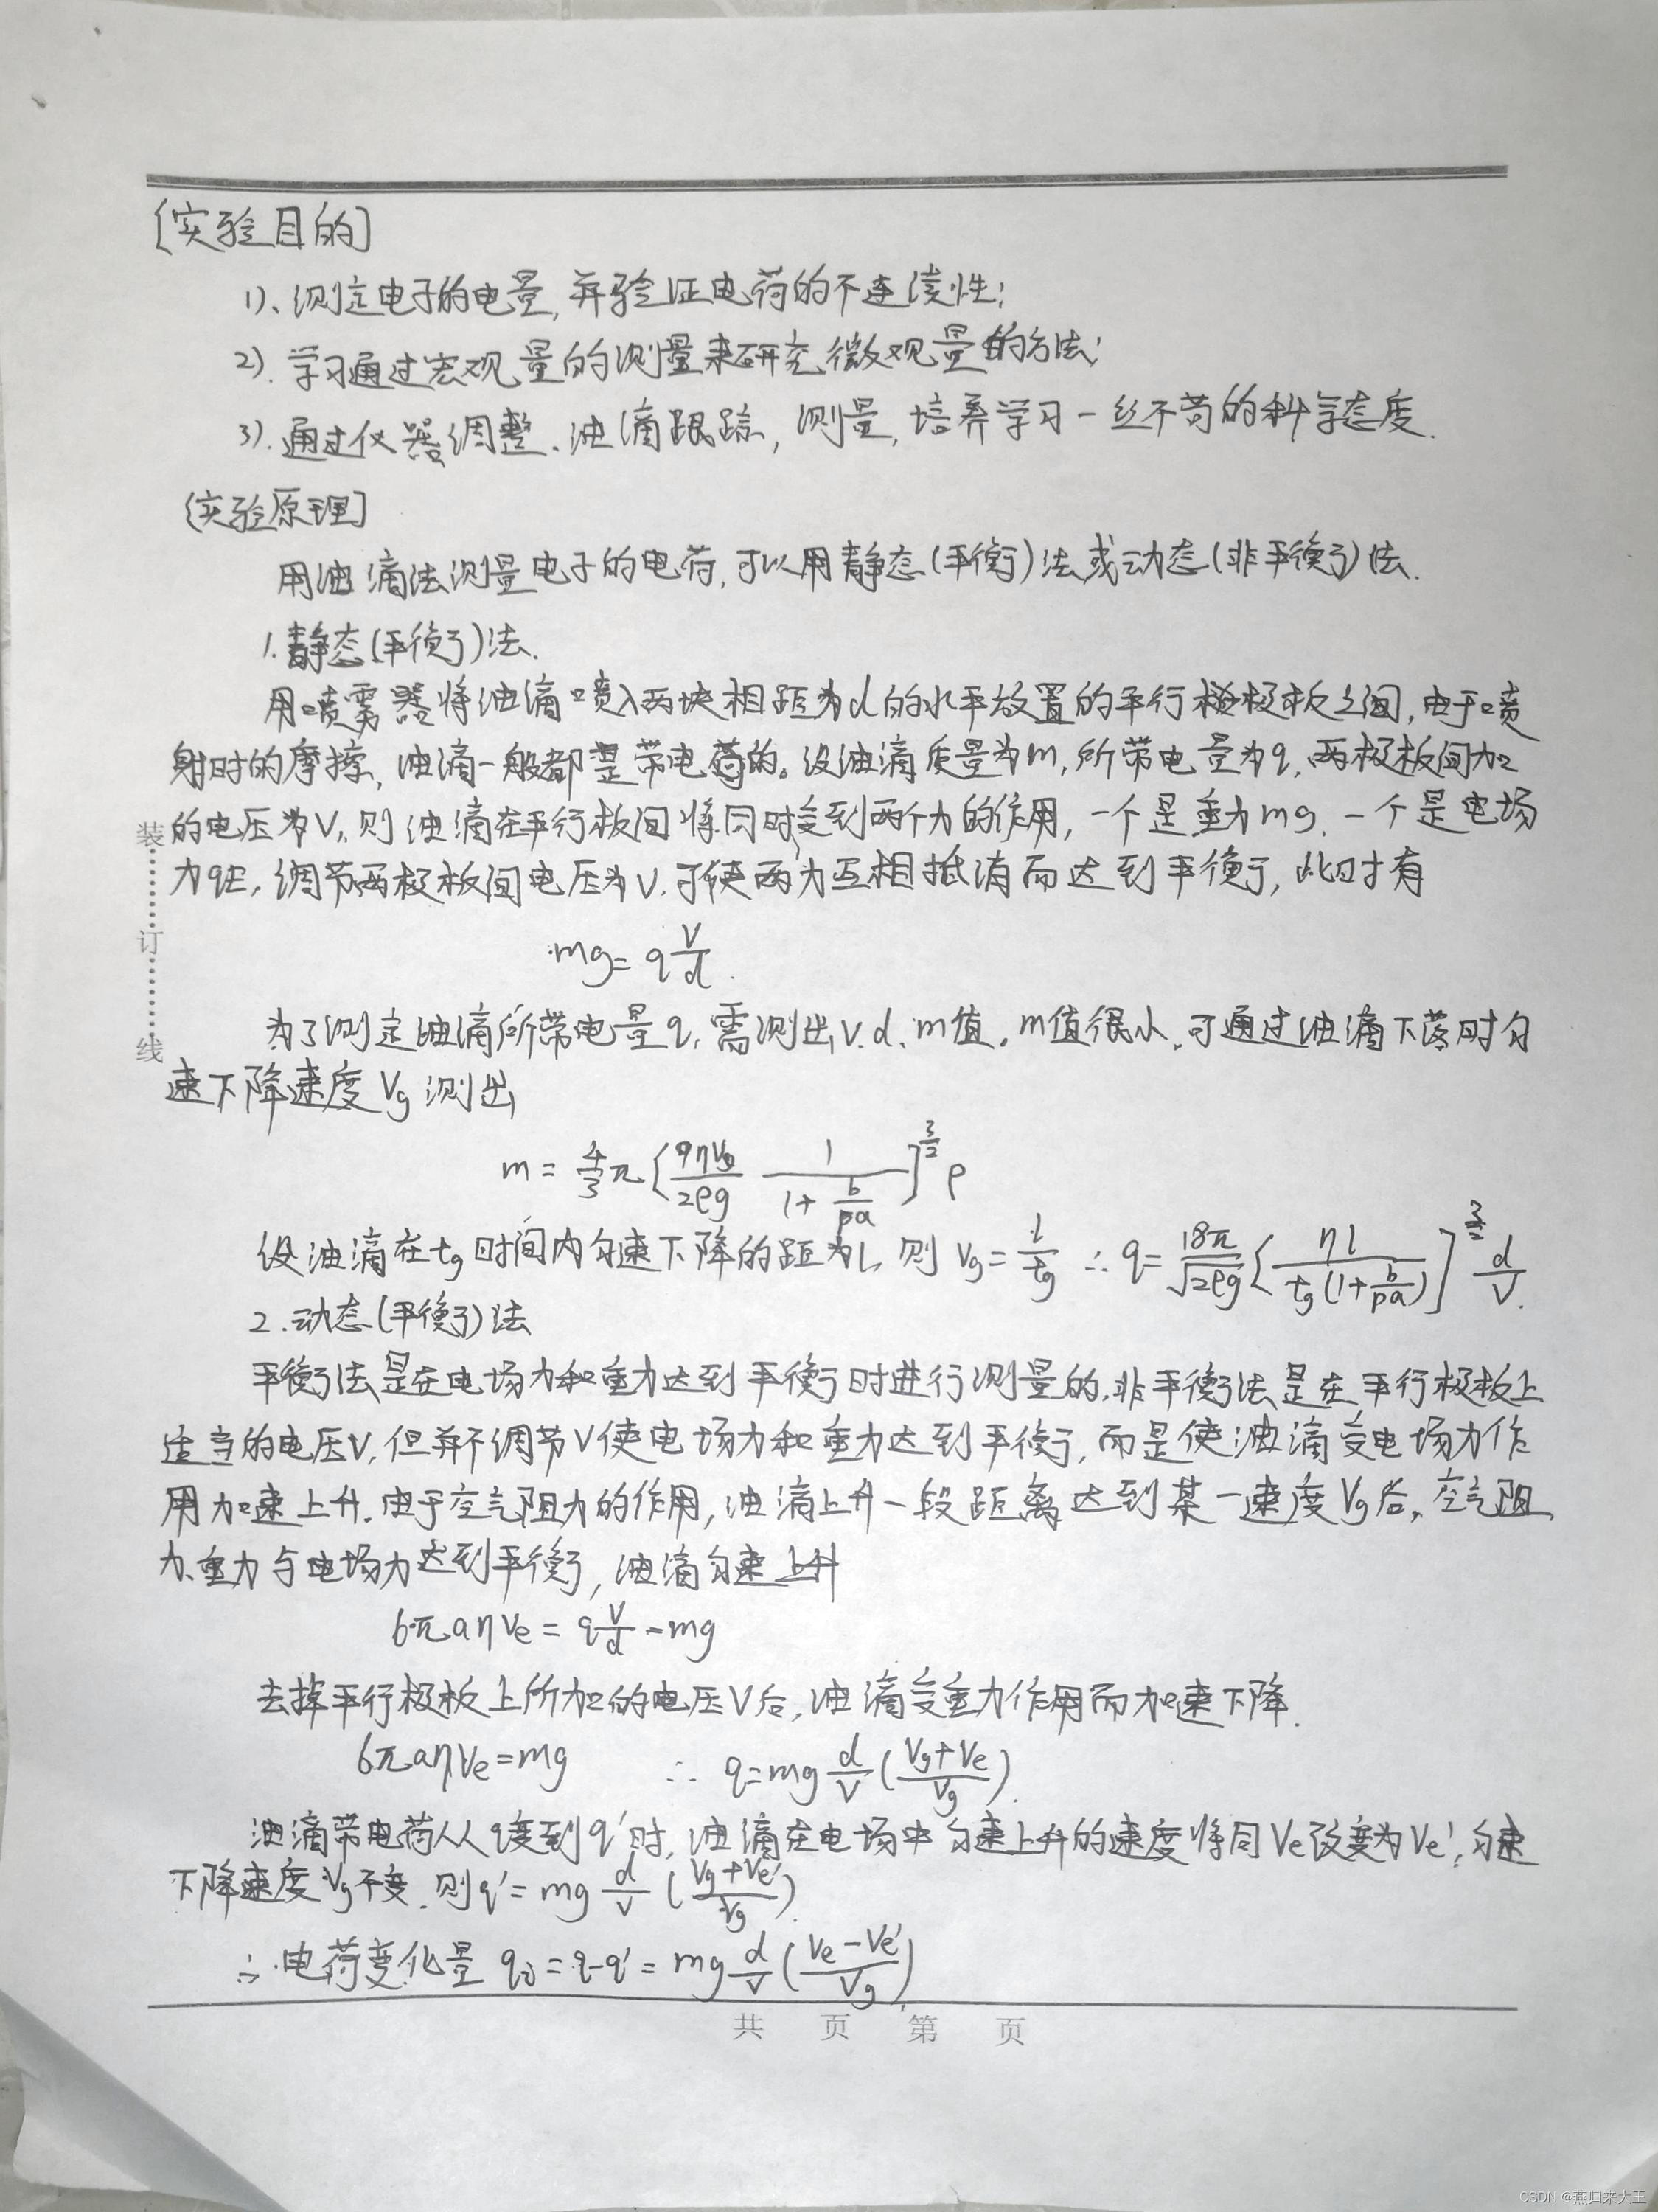 [实验目的]
1)、测定电子的电量,并验证电荷的不连续性;
2). 学习通过宏观量的测量来研究微观量的方法;
3). 通过仪器调整、油滴跟踪,测量,培养学习一丝不苟的科学态度.
[实验原理]
用油滴法测量电子的电荷,可以用静态(平衡)法或动态(非平衡)法.
1.静态(平衡)法.
用喷雾器将油滴喷入两块相距为d的水平放置的平行极板之间,由于喷
射时的摩擦,油滴一般都是带电荷的。设油滴质量为m,所带电量为q,两极板间加
的电压为V,则油滴在平行板间将同时受到两个力的作用,一个是重力mg,一个是电场
力qE,调节两极板间电压为V,可使两力互相抵消而达到平衡,此时有
mg = q V/d.
为了测定油滴所带电量q,需测出V.d、m值。m值很小,可通过油滴下落时匀
速下降速度Vg测出
m = 4/3 π [9ηVg/2ρg 1/(1+b/pa)]^(3/2) ρ
设油滴在tg时间内匀速下降的距为l,则 Vg = l/tg ∴ q = 18π/√2ρg [ηl/tg(1+b/pa)]^(3/2) d/V.
2.动态(平衡)法
平衡法是在电场力和重力达到平衡时进行测量的,非平衡法是在平行极板上
适当的电压V,但并不调节V使电场力和重力达到平衡,而是使油滴受电场力作
用加速上升.由于空气阻力的作用,油滴上升一段距离达到某一速度Vg后,空气阻
力、重力与电场力达到平衡,油滴匀速上升
6πaηVe = q V/d - mg
去掉平行极板上所加的电压V后,油滴受重力作用而加速下降.
6πaηVe = mg ∴ q = mg d/V (Vg+Ve/Vg).
油滴带电荷从q变到q'时,油滴在电场中匀速上升的速度将同Ve改变为Ve',匀速
下降速度Vg不变.则q' = mg d/V (Vg+Ve'/Vg).
∴电荷变化量 qi = q-q' = mg d/V (Ve-Ve'/Vg).
装
订
线
共 页 第 页
CSDN @燕归来大王